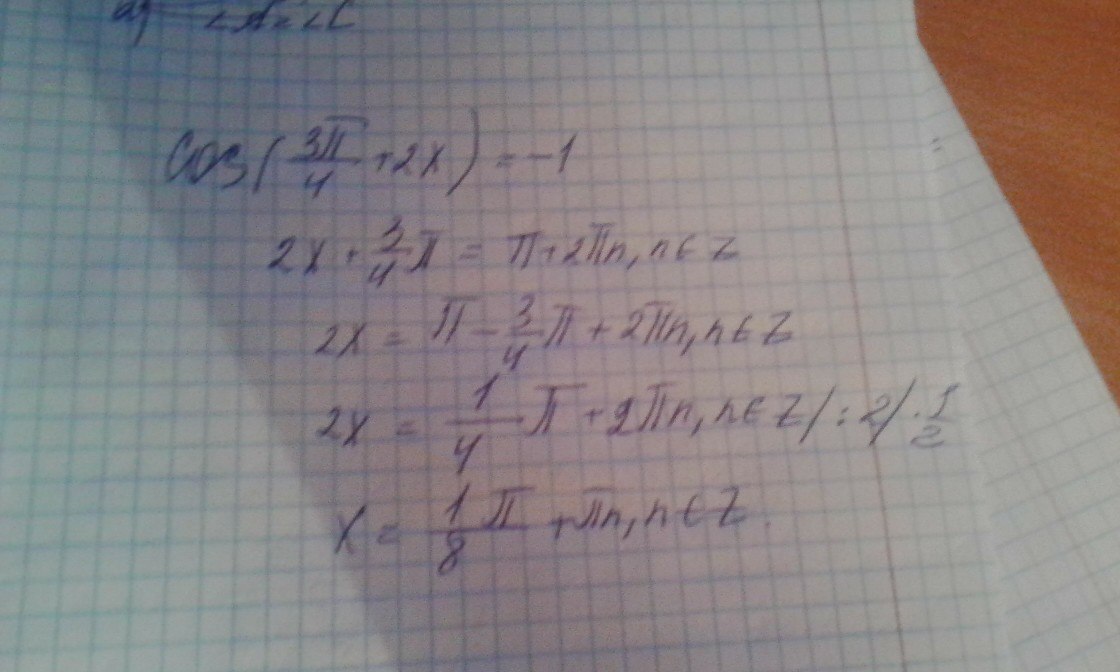 ∠A = ∠C
cos(3π/4 + 2x) = -1
2x + 3/4 π = π + 2πn, n ∈ Z
2x = π - 3/4 π + 2πn, n ∈ Z
2x = 1/4 π + 2πn, n ∈ Z / : 2 / · 1/2
x = 1/8 π + πn, n ∈ Z.